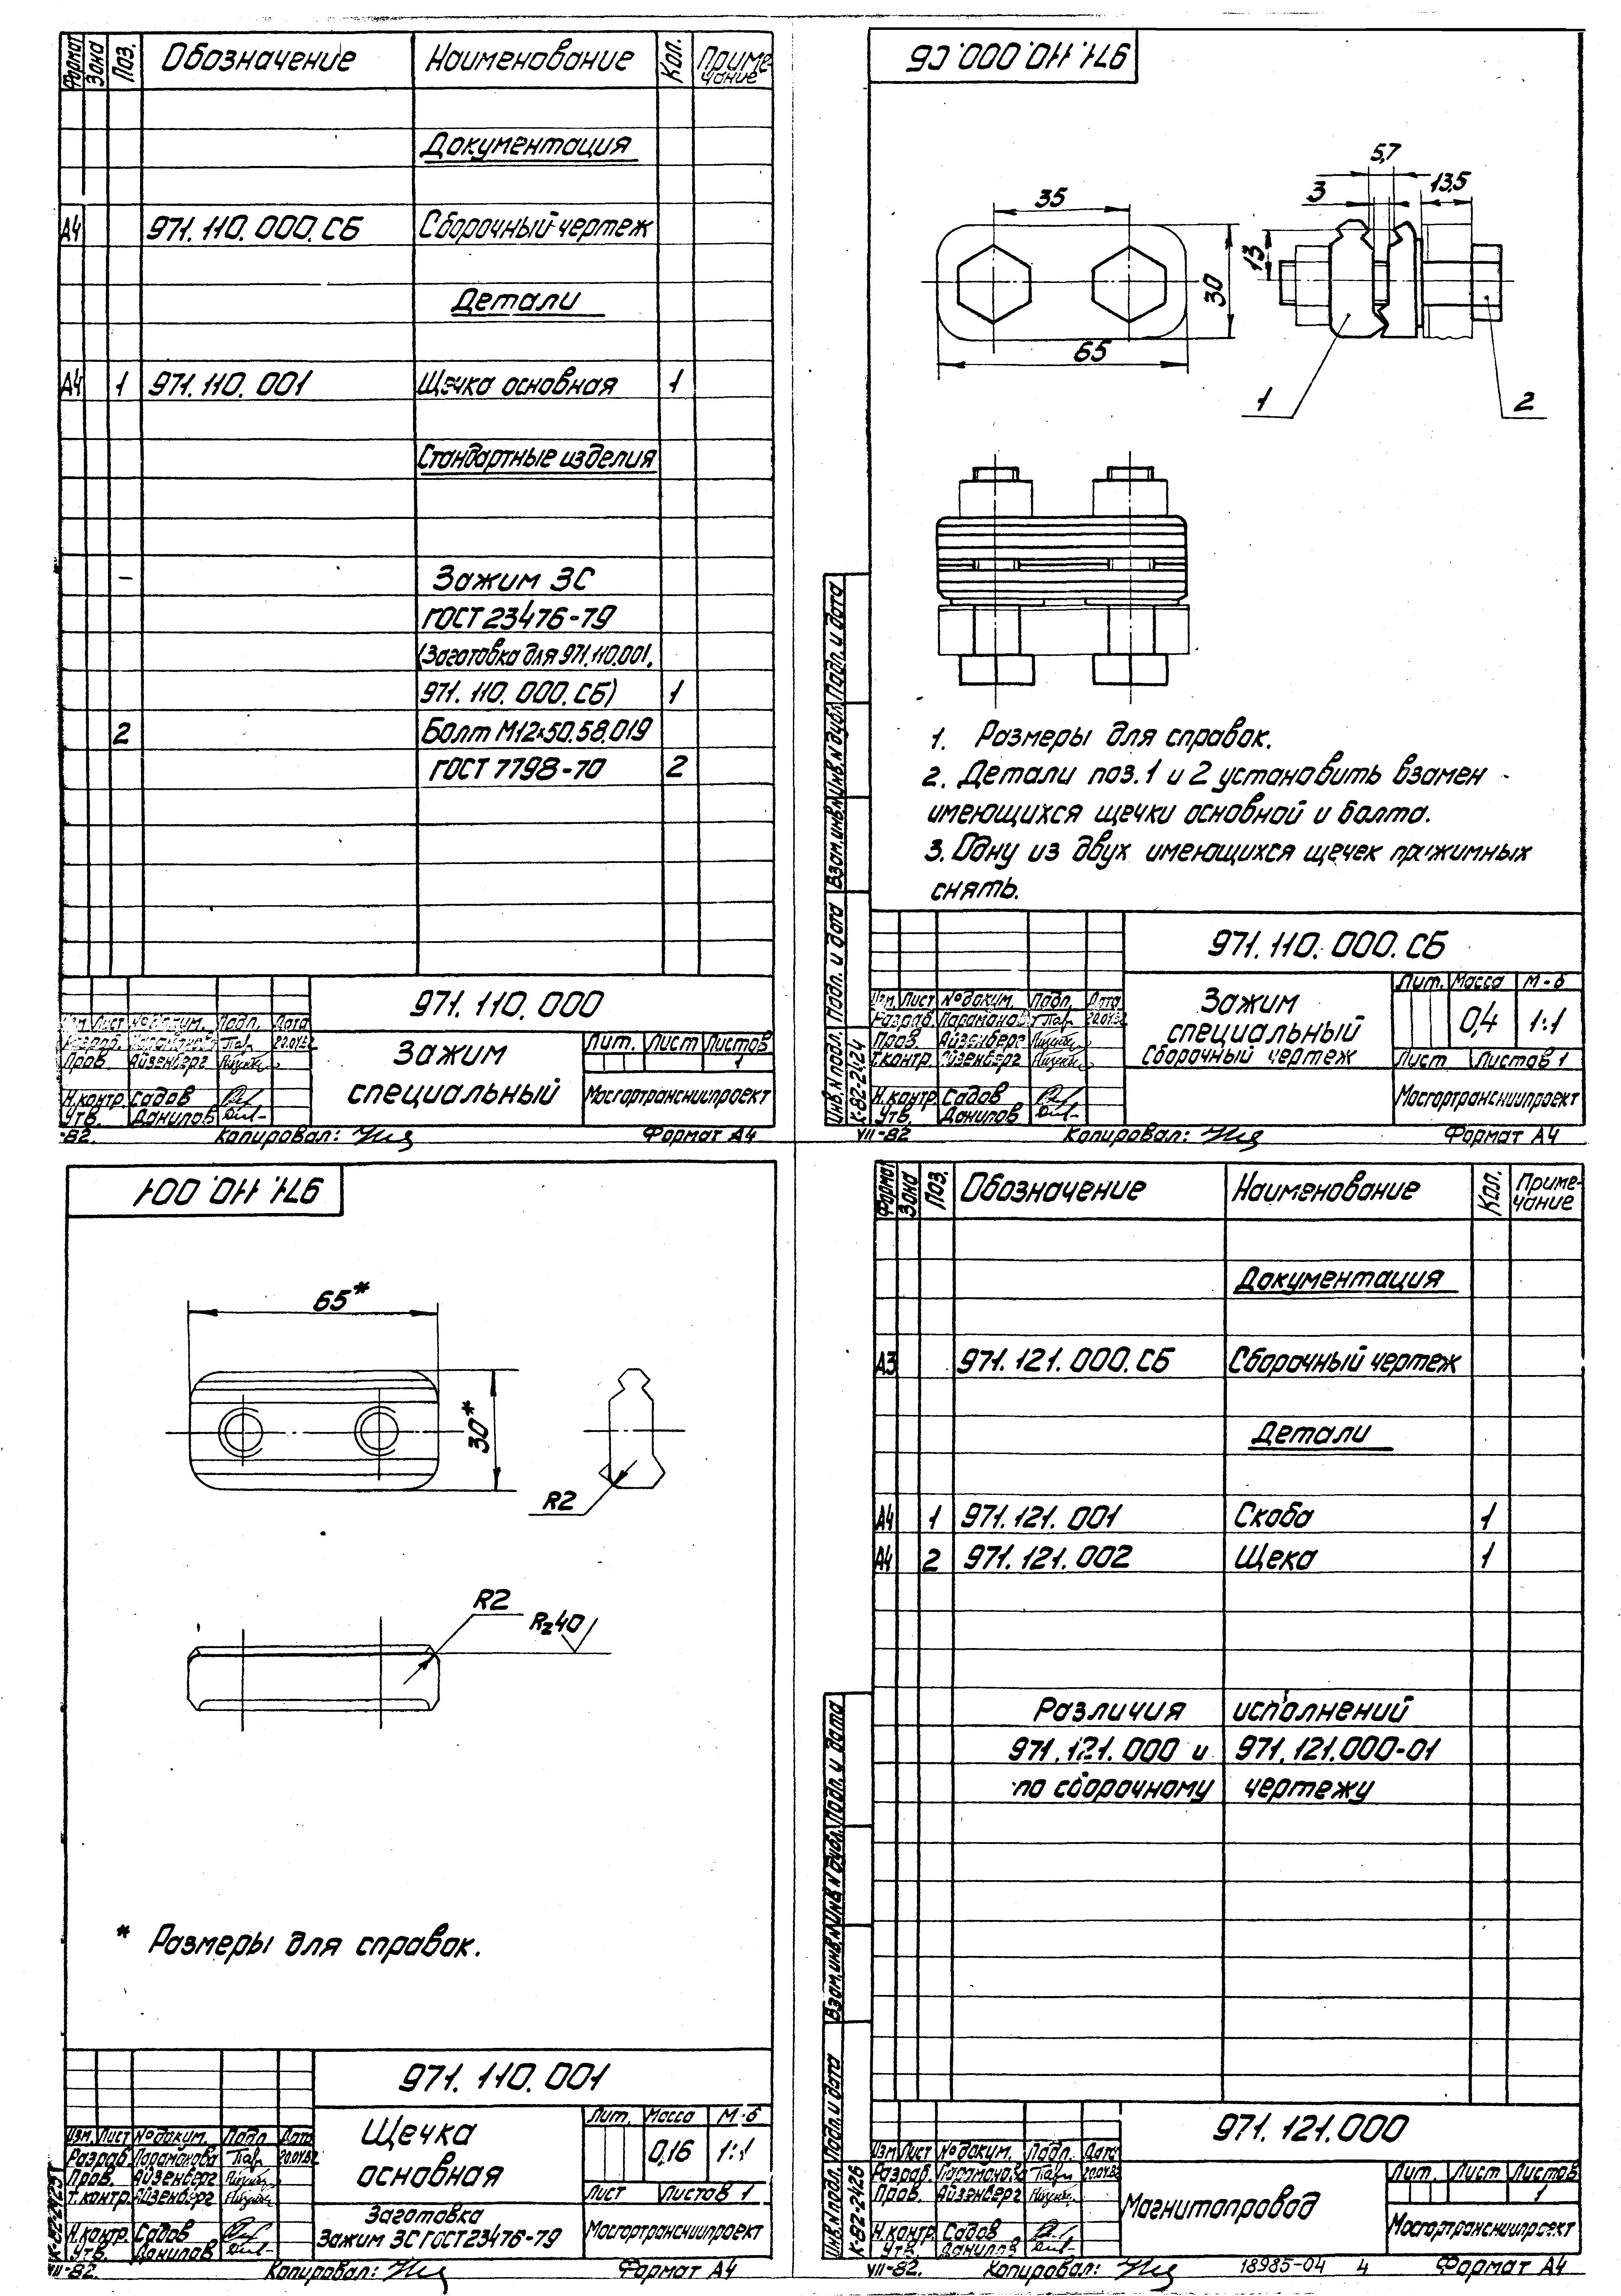 Формат Зона Поз. Обозначение Наименование Кол. Приме-
чание
Документация
А4 971.110.000.СБ Сборочный чертеж
Детали
А4 1 971.110.001 Щечка основная 1
Стандартные изделия
– Зажим 3С
ГОСТ 23476-79
(Заготовка для 971.110.001,
971.110.000.СБ) 1
2 Болт М12х50.58.019
ГОСТ 7798-70 2
971.110.000
Изм. Лист № докум. Подп. Дата
Разраб. Парамонова 20.04.82
Пров. Айзенберг
Н.контр. Садов
Утв. Данилов
Зажим
специальный
Лит. Лист Листов
1
Мосгортрансниипроект
-82. Копировал: Формат А4
971.110.000.СБ
35
30
65
5,7
3
13,5
13
1
2
1. Размеры для справок.
2. Детали поз. 1 и 2 установить взамен
имеющихся щечки основной и болта.
3. Одну из двух имеющихся щечек прижимных
снять.
Инв. № подл. Подп. и дата Взам. инв. № Инв. № дубл. Подп. и дата
К-82-2424
971.110.000.СБ
Изм. Лист № докум. Подп. Дата
Разраб. Парамонова 20.04.82
Пров. Айзенберг
Т.контр. Айзенберг
Н.контр. Садов
Утв. Данилов
Зажим
специальный
Сборочный чертеж
Лит. Масса М-б
0,4 1:1
Лист Листов 1
Мосгортрансниипроект
VII-82 Копировал: Формат А4
971.110.001
65*
30*
R2
R2
Rz40
* Размеры для справок.
971.110.001
Изм. Лист № докум. Подп. Дата
Разраб. Парамонова 20.04.82
Пров. Айзенберг
Т.контр. Айзенберг
Н.контр. Садов
Утв. Данилов
Щечка
основная
Заготовка
Зажим 3С ГОСТ 23476-79
Лит. Масса М-б
0,16 1:1
Лист Листов 1
Мосгортрансниипроект
К-82-2425
VII-82. Копировал: Формат А4
Формат Зона Поз. Обозначение Наименование Кол. Приме-
чание
Документация
А3 971.121.000.СБ Сборочный чертеж
Детали
А4 1 971.121.001 Скоба 1
А4 2 971.121.002 Щека 1
Различия исполнений
971.121.000 и 971.121.000-01
по сборочному чертежу
Инв. № подл. Подп. и дата Взам. инв. № Инв. № дубл. Подп. и дата
К-82-2426
971.121.000
Изм. Лист № докум. Подп. Дата
Разраб. Парамонова 20.04.82
Пров. Айзенберг
Н.контр. Садов
Утв. Данилов
Магнитопровод
Лит. Лист Листов
1
Мосгортрансниипроект
VII-82. Копировал: 18985-04 4 Формат А4